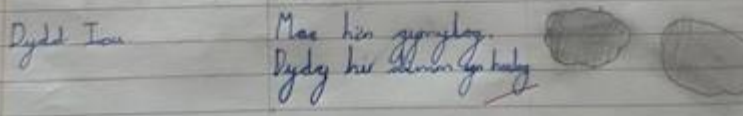 Dydd Iau
Mae hin gymylog.
Dydy hi ddim yn heulog